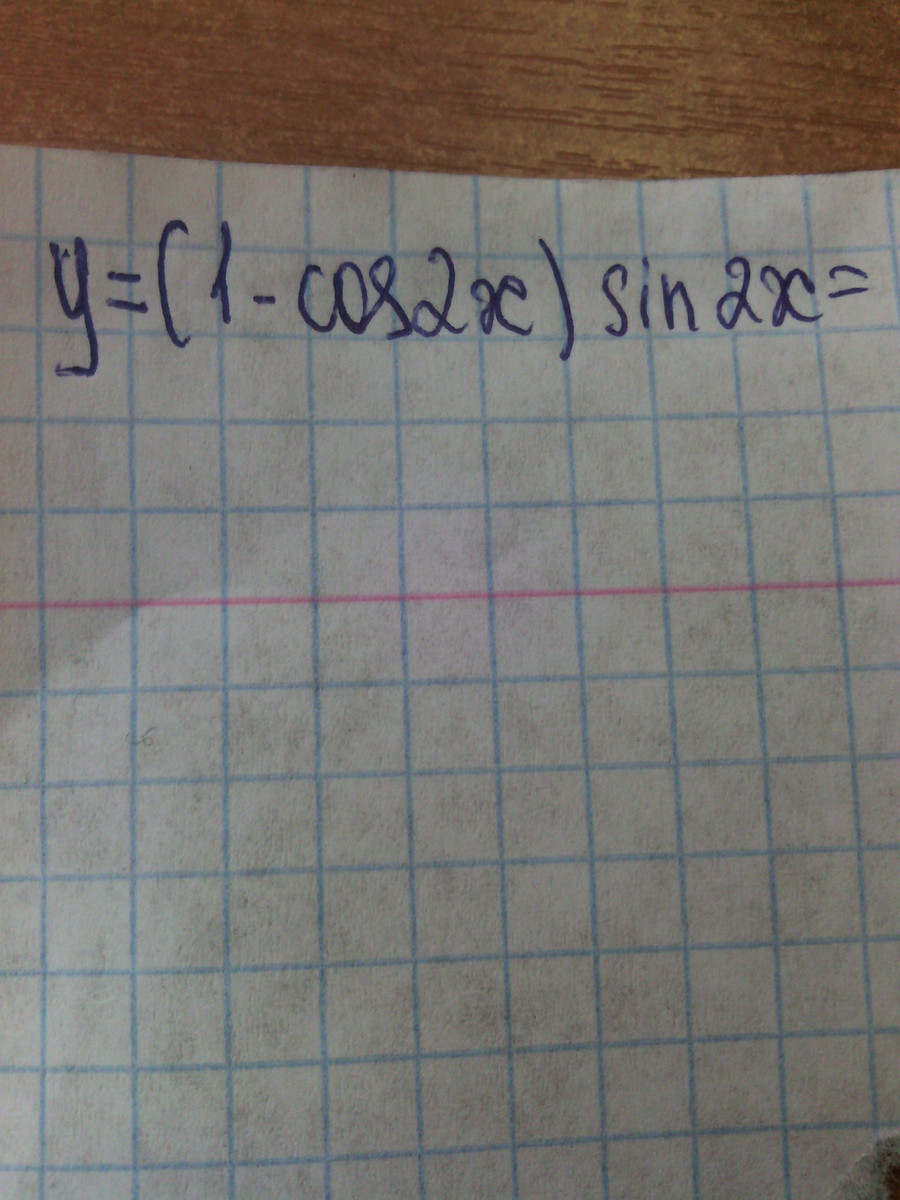 y=(1-cos2x) sin 2x=